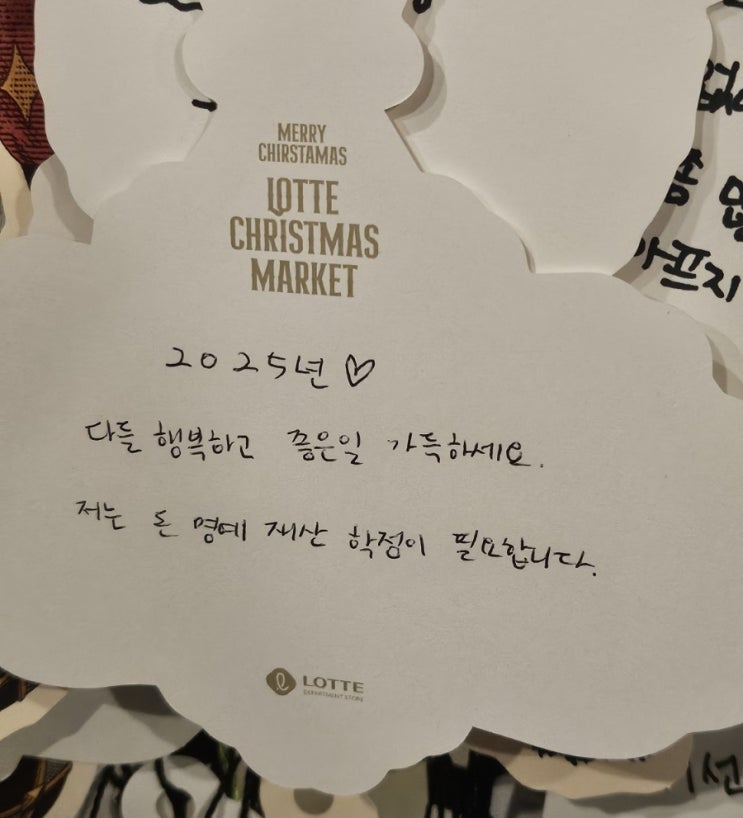 MERRY
CHIRSTAMAS
LOTTE
CHRISTMAS
MARKET
2025년 ♡
다들 행복하고 좋은일 가득하세요.
저는 돈 명예 재산 학점이 필요합니다.
LOTTE
DEPARTMENT STORE
아프지